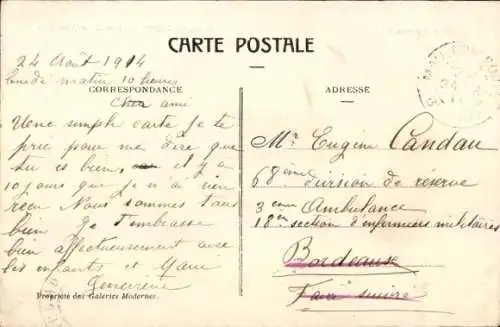 CARTE POSTALE
24 Août 1914
Lundi matin 10 heures
CORRESPONDANCE
Cher ami
Une simple carte je te
prie pour me dire que
tu es bien, il y a
10 jours que je n'ai rien
reçu Nous sommes tous
bien Je t'embrasse
bien affectueusement avec
les enfants et
Genevieve
Propriété des Galeries Modernes.
ADRESSE
Mr Eugène Candau
68ème division de réserve
3ème Ambulance
18e section d'enfirmiers militaires
Bordeaux
Faire suivre